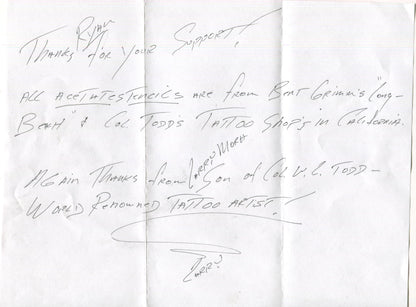 Ryan
Thanks for your Support!
All Acetate Stencils are from Bert Grimm's "Long-
Beach" & Col. Todd's Tattoo Shop's in California.
Larry Mora
Again Thanks from Son of Col. W. C. Todd -
World Renowned Tattoo Artist!
Larry